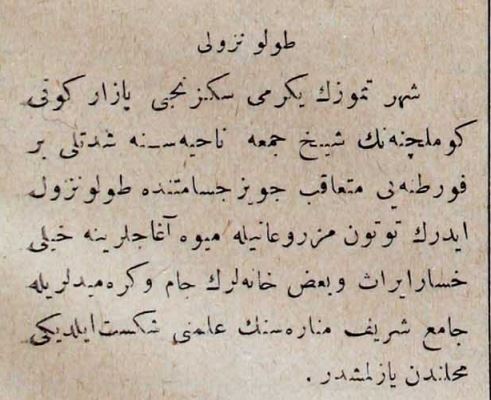 طولو نزولی
شهر تموزك یكرمی سكزنجی پازار كونی
كوملجنه‌نك شیخ جمعه ناحیه‌سنه شدتلی بر
فورطنه‌یی متعاقب جویز جسامتنده طولو نزول
ایدرك توتون مزروعاتیله میوه آغاجلرینه خیلی
خسار ایراث وبعض خانه‌لرك جام وكره‌میدلریله
جامع شریف مناره‌سنك علمنی شكست ایلدیكی
محلندن یازلمشدر .